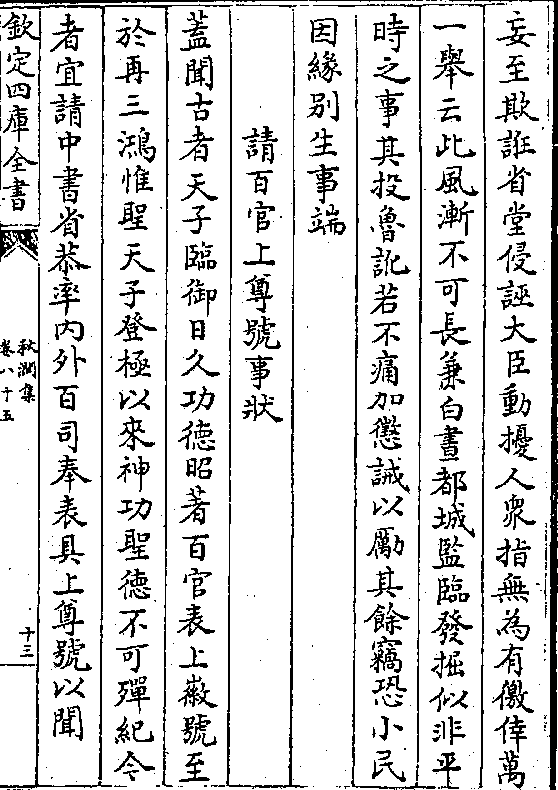 妄至欺誑省堂侵誣大臣動擾人衆指無為有儌倖萬
一舉云此風漸不可長兼白晝都城監臨發掘似非平
時之事其投魯訛若不痛加懲誡以勵其餘竊恐小民
因緣別生事端
請百官上尊號事狀
蓋聞古者天子臨御日久功德昭著百官表上徽號至
於再三鴻惟聖天子登極以來神功聖德不可殫紀今
者宜請中書省恭率内外百司奉表具上尊號以聞
欽定四庫全書
秋澗集
卷八十五
十三